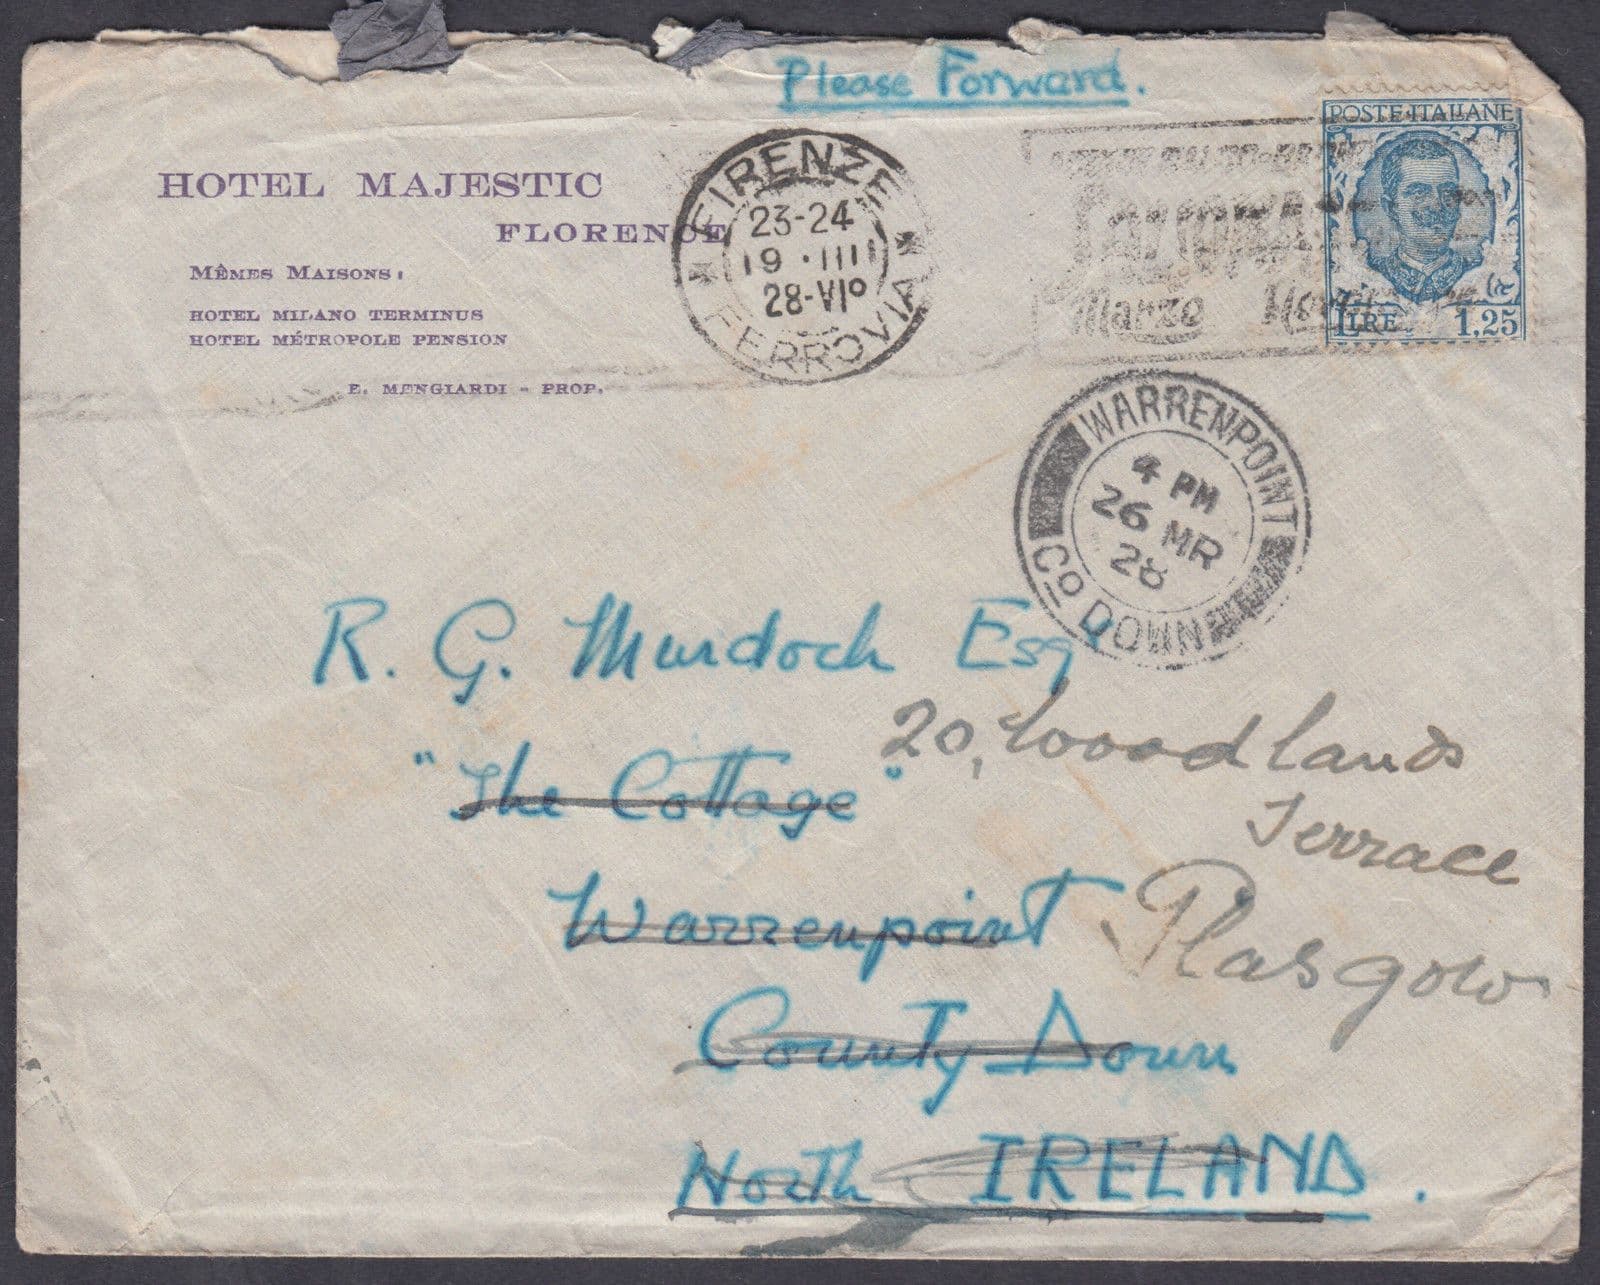 Please Forward.
POSTE·ITALIANE
HOTEL MAJESTIC
FLORENCE
MÊMES MAISONS:
HOTEL MILANO TERMINUS
HOTEL MÉTROPOLE PENSION
E. MENGIARDI - PROP.
FIRENZE
23-24
19·III
28-VIº
FERROVIA
Marzo
LIRE 1.25
WARRENPOINT
4 PM
26 MR
28
Cº DOWN
R. G. Murdoch Esq
"The Cottage"
20, Woodlands
Terrace
Warrenpoint
Glasgow
County Down
North IRELAND.